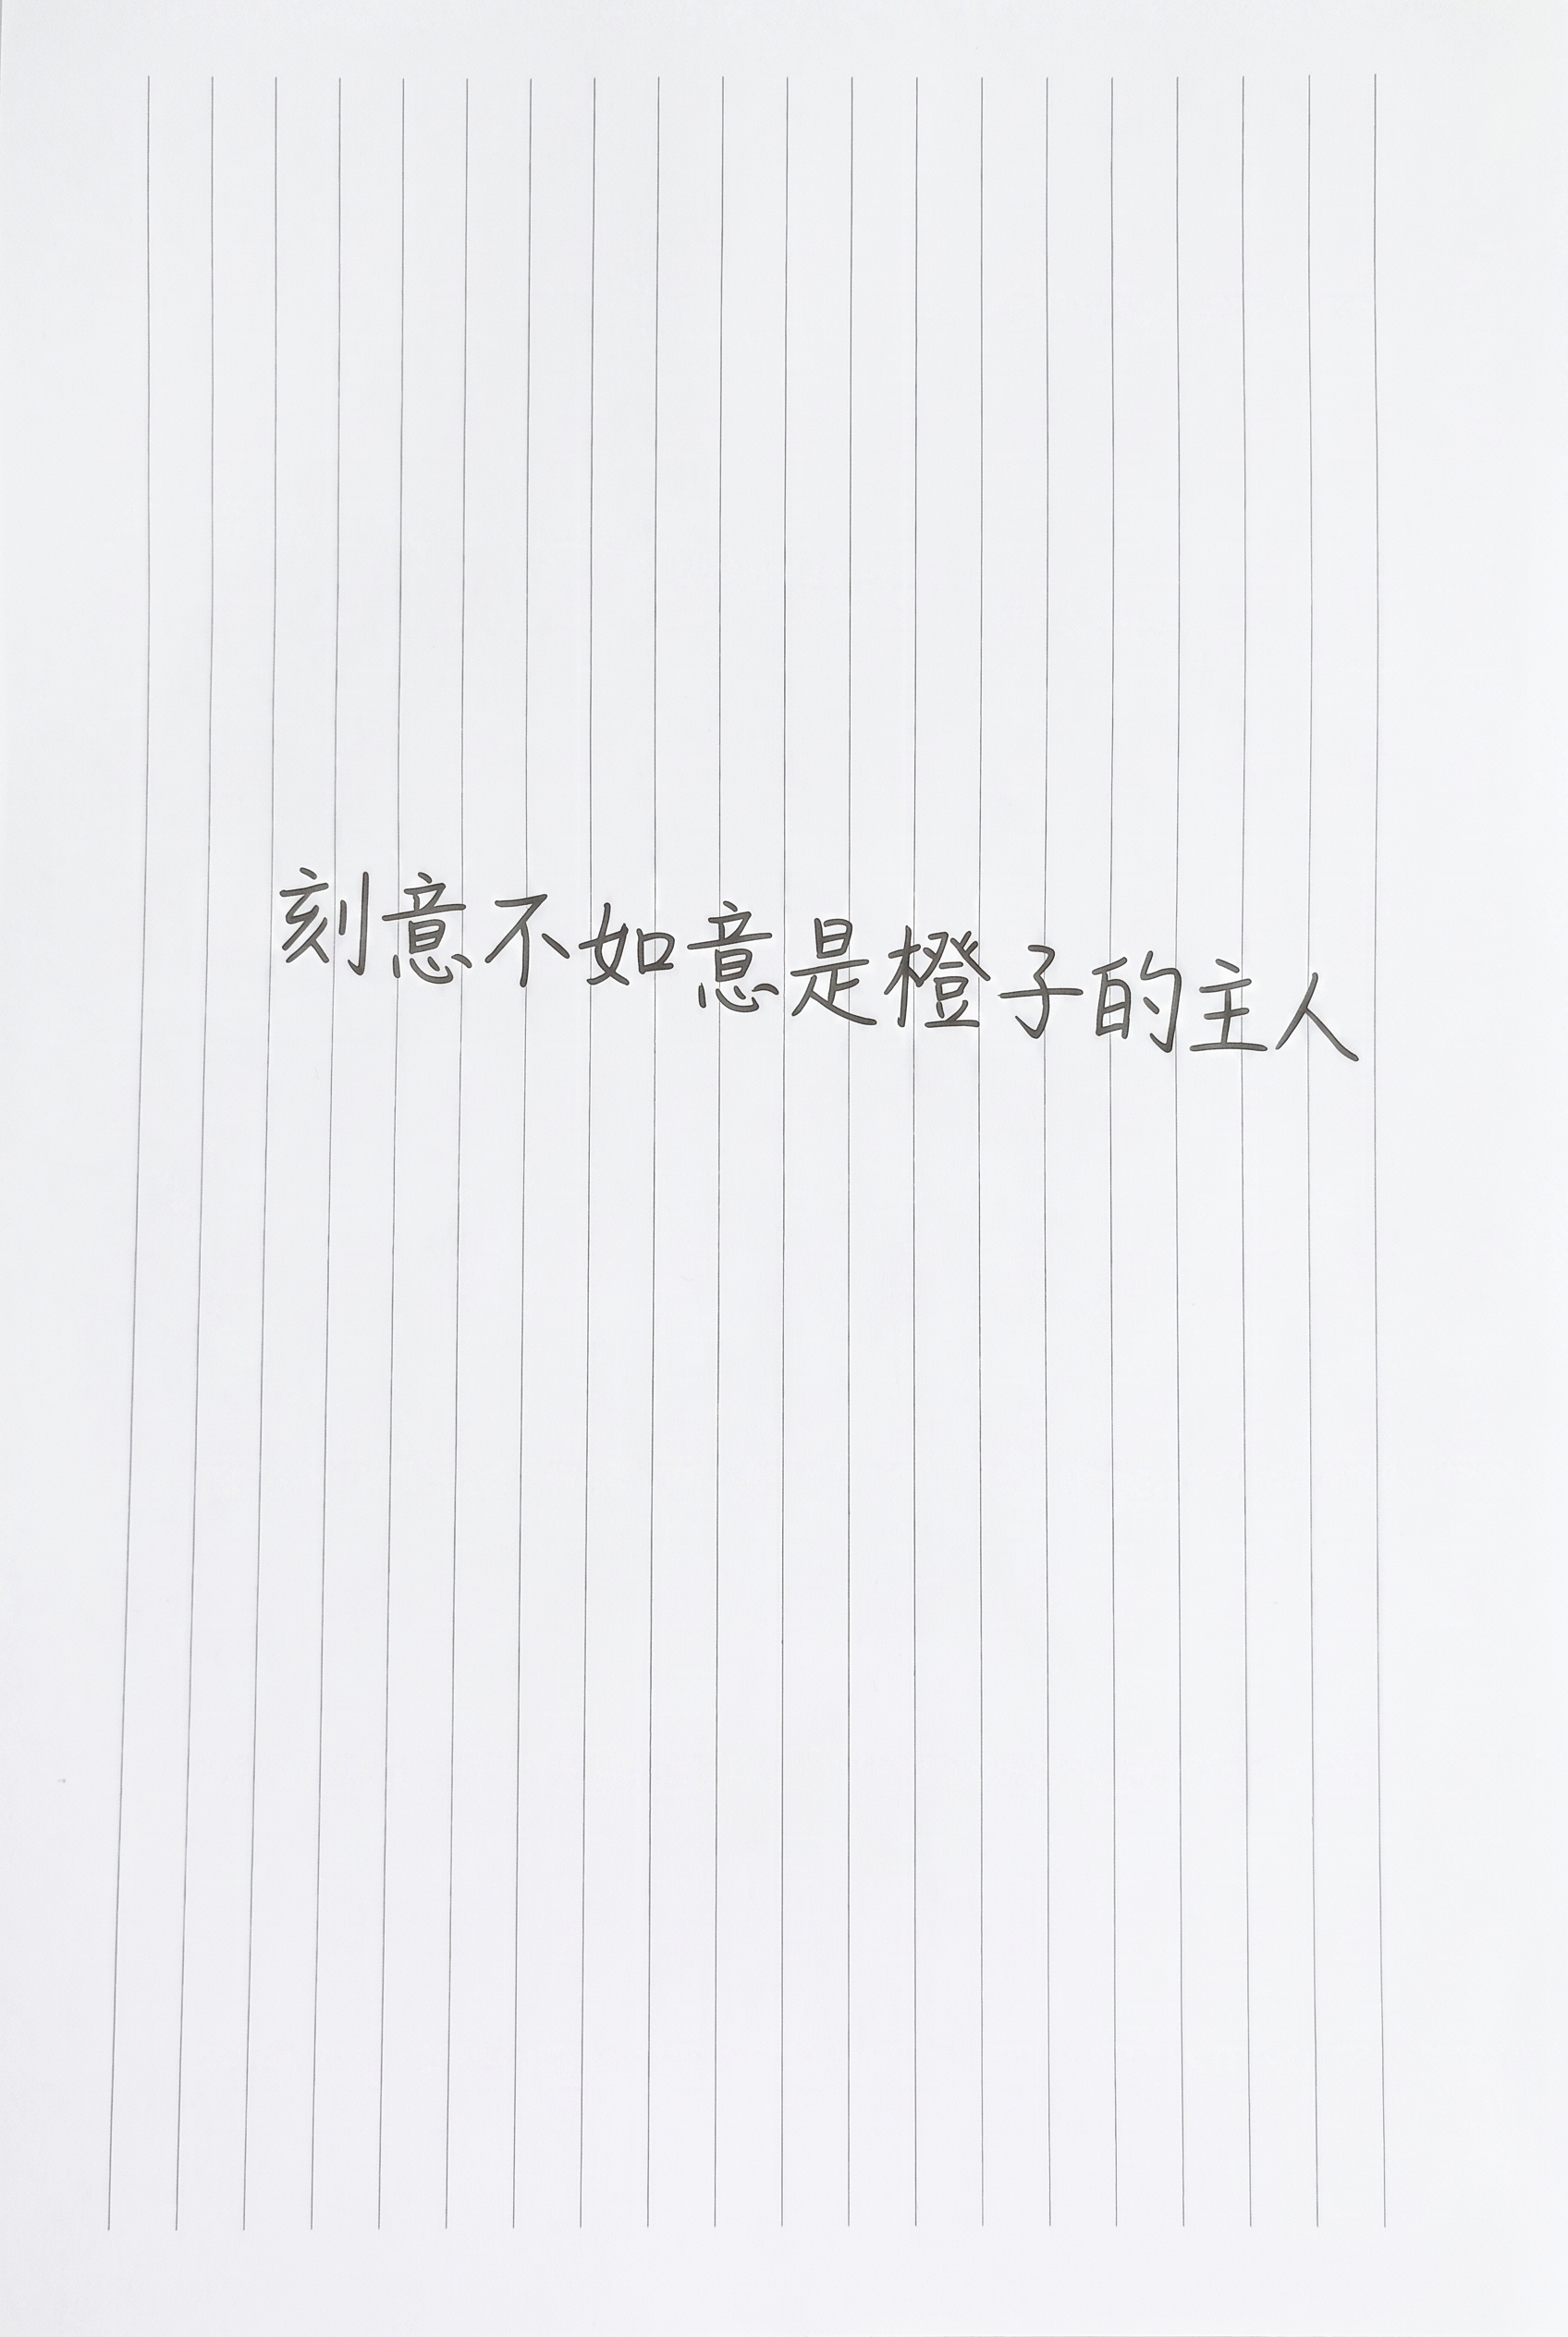 刻意不如意是橙子的主人